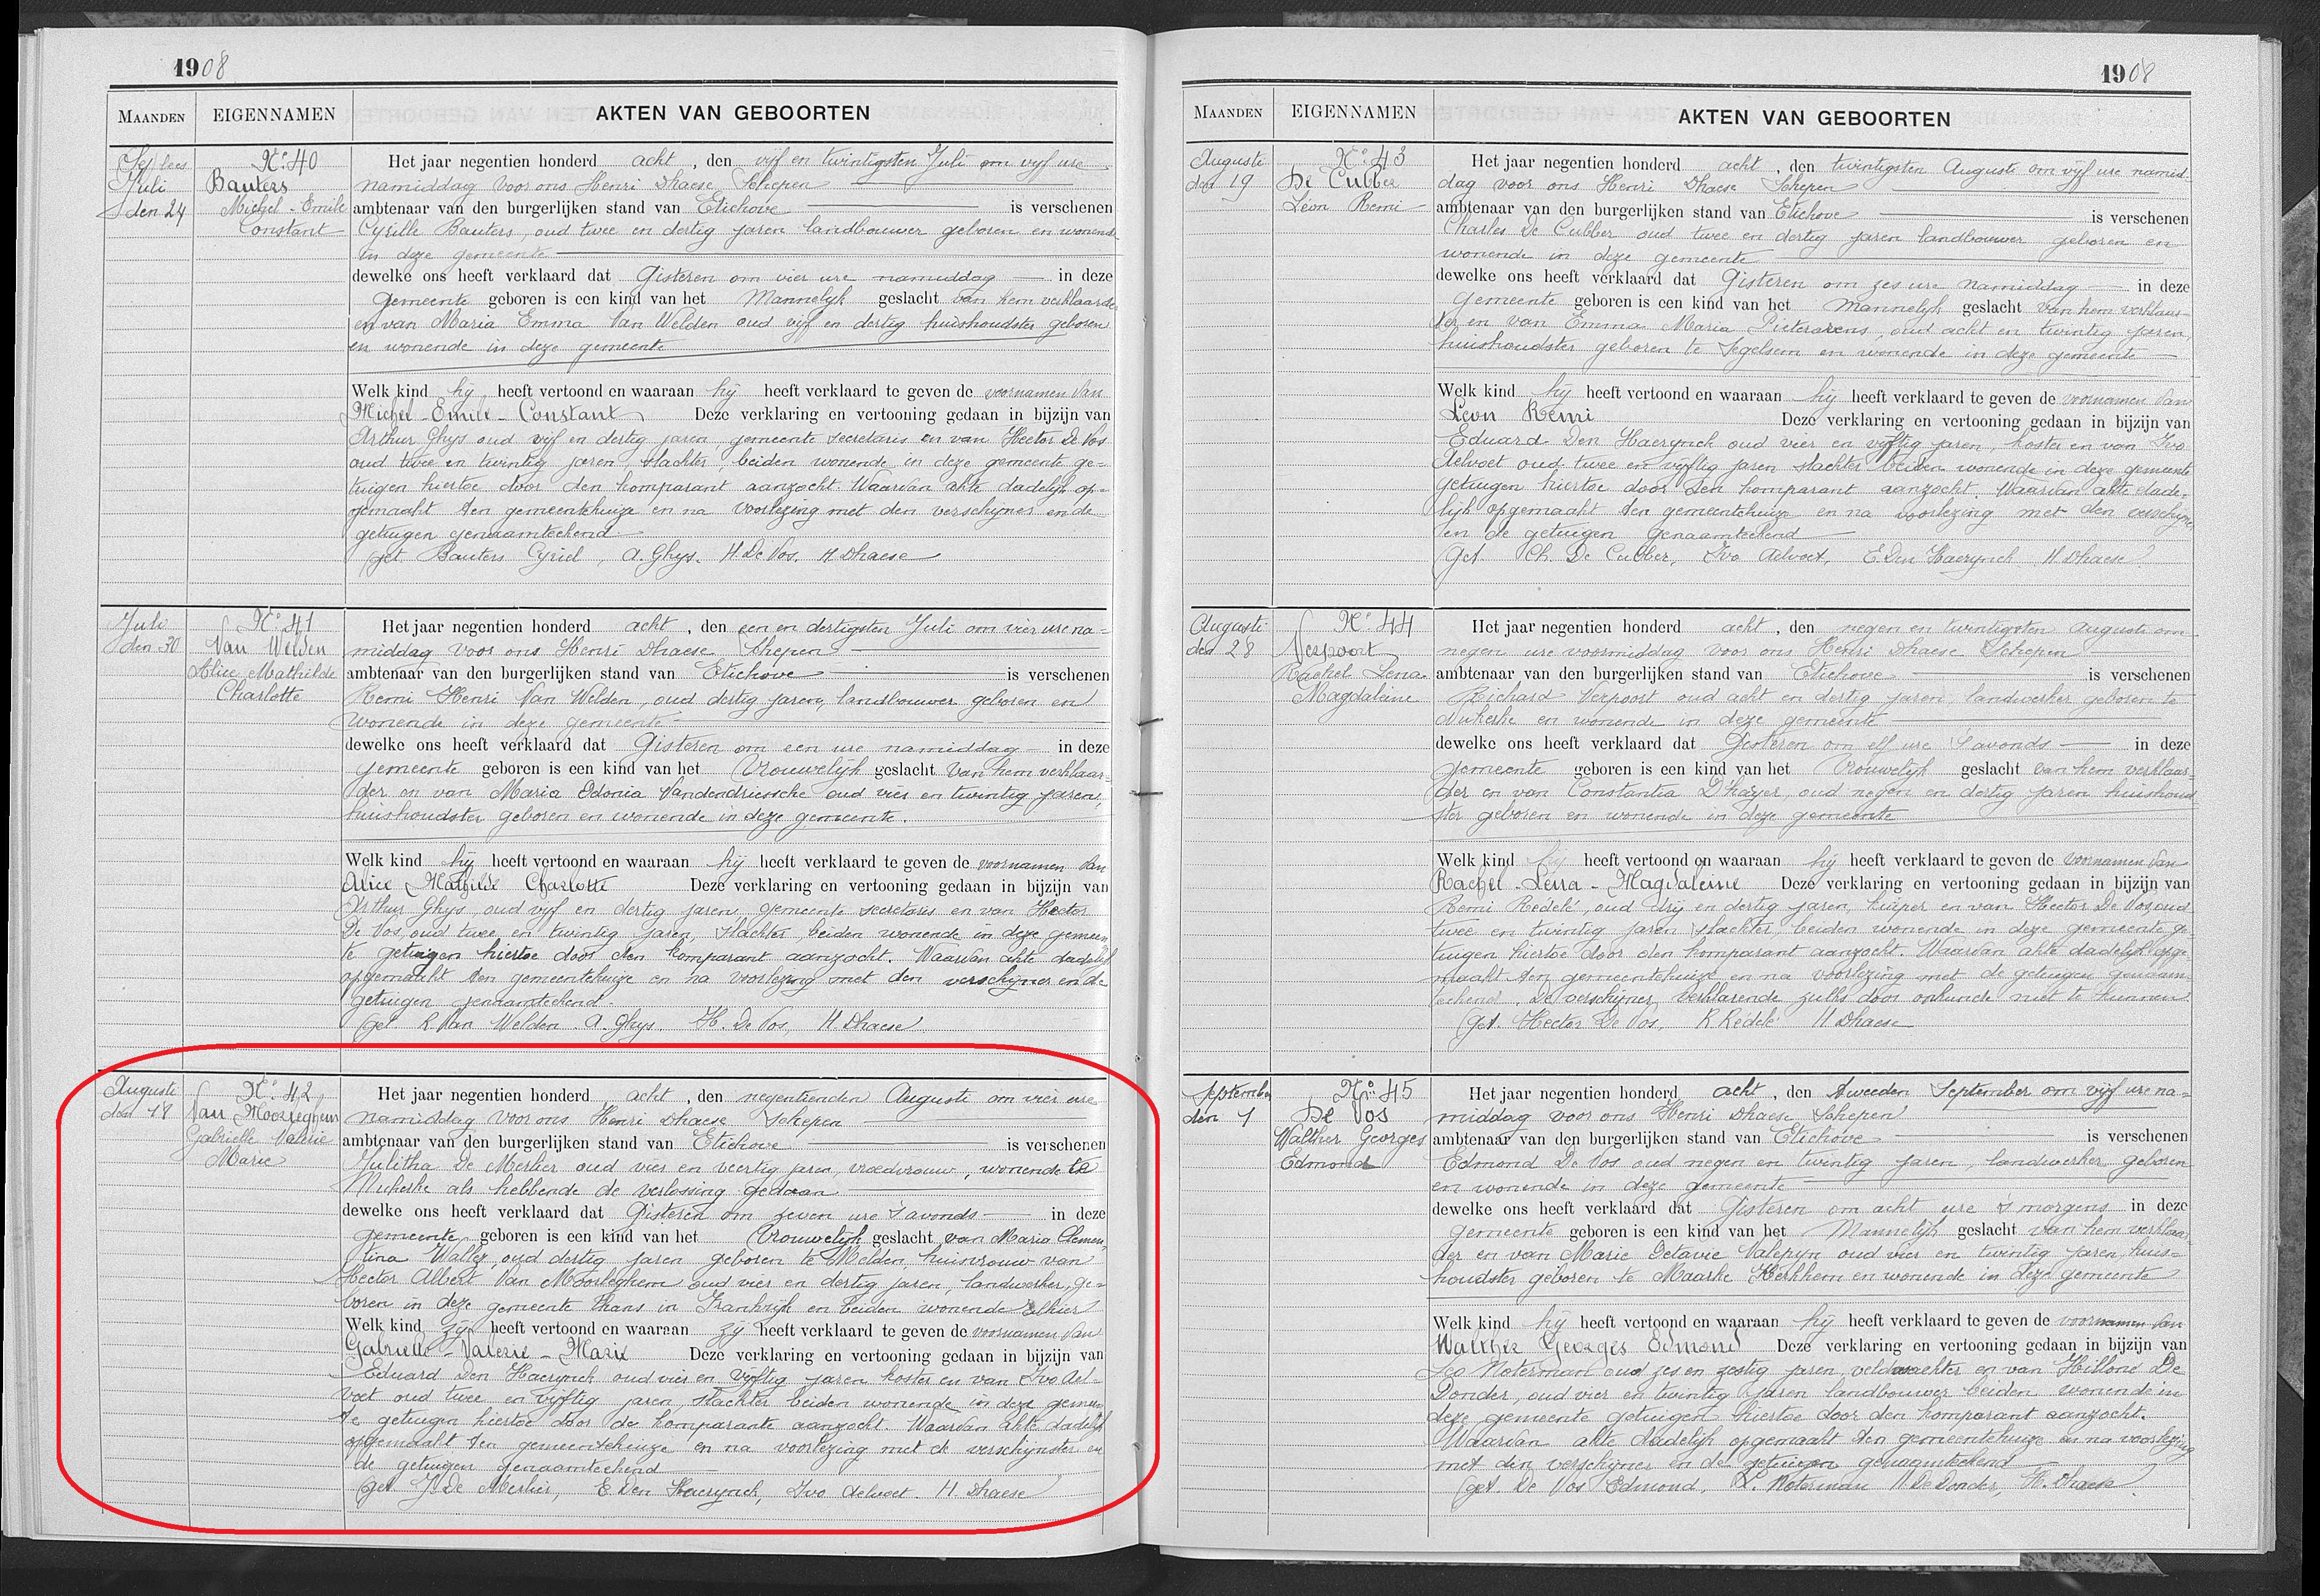 1908
MAANDEN
EIGENNAMEN
AKTEN VAN GEBOORTEN
Juli
den 24
N° 40
Bauters
Michel-Emile
Constant
Het jaar negentien honderd acht, den vijf en twintigsten Juli om vijf ure
namiddag voor ons Henri Dhaese Schepen
ambtenaar van den burgerlijken stand van Etichove is verschenen
Cyrille Bauters, oud twee en dertig jaren landbouwer geboren en wonende
in deze gemeente
dewelke ons heeft verklaard dat Gisteren om vier ure namiddag in deze
gemeente geboren is een kind van het Mannelijk geslacht van hem verklaarder
en van Maria Emma Van Welden oud vijf en dertig huishoudster geboren
en wonende in deze gemeente
Welk kind hij heeft vertoond en waaraan hij heeft verklaard te geven de voornamen van
Michel-Emile-Constant Deze verklaring en vertooning gedaan in bijzijn van
Arthur Ghys oud vijf en dertig jaren gemeente secretaris en van Hector De Vos
oud twee en twintig jaren, slachter, beiden wonende in deze gemeente ge=
tuigen hiertoe door den komparant aanzocht. Waarvan akte dadelijk op=
gemaakt ten gemeentehuize en na voorlezing met den verschijner en de
getuigen genaamteekend
(get. Bauters Cyriel, A. Ghys. H. De Vos. H Dhaese
Juli
den 30
N° 41
Van Welden
Alice Mathilde
Charlotte
Het jaar negentien honderd acht, den een en dertigsten Juli om vier ure na=
middag voor ons Henri Dhaese Schepen
ambtenaar van den burgerlijken stand van Etichove is verschenen
Remi Henri Van Welden, oud dertig jaren, landbouwer geboren en
wonende in deze gemeente
dewelke ons heeft verklaard dat Gisteren om een ure namiddag in deze
gemeente geboren is een kind van het Vrouwelijk geslacht van hem verklaar=
der en van Maria Odonia Vandendriessche oud vier en twintig jaren,
huishoudster geboren en wonende in deze gemeente.
Welk kind hij heeft vertoond en waaraan hij heeft verklaard te geven de voornamen van
Alice Mathilde Charlotte Deze verklaring en vertooning gedaan in bijzijn van
Arthur Ghys, oud vijf en dertig jaren, gemeente secretaris en van Hector
De Vos, oud twee en twintig jaren, slachter, beiden wonende in deze gemeen
te getuigen hiertoe door den komparant aanzocht. Waarvan akte dadelijk
opgemaakt ten gemeentehuize en na voorlezing met den verschijner en de
getuigen genaamteekend.
(get R. Van Welden. A. Ghys. H. De Vos. H Dhaese
Augusti
den 18
N° 42
Van Moorleghem
Gabrielle Valerie
Marie
Het jaar negentien honderd acht, den negentienden Augusti om vier ure
namiddag voor ons Henri Dhaese Schepen
ambtenaar van den burgerlijken stand van Etichove is verschenen
Julitha De Merlier oud vier en veertig jaren, vroedvrouw, wonende te
Nukerke als hebbende de verlossing gedaan
dewelke ons heeft verklaard dat Gisteren om zeven ure 's avonds in deze
gemeente geboren is een kind van het Vrouwelijk geslacht van Maria Clemen
tina Wallez, oud dertig jaren geboren te Melden, huisvrouw van
Hector Albert Van Moorleghem oud vier en dertig jaren, landwerker, ge=
boren in deze gemeente thans in Frankrijk en beiden wonende alhier
Welk kind zij heeft vertoond en waaraan zij heeft verklaard te geven de voornamen van
Gabrielle-Valerie-Marie Deze verklaring en vertooning gedaan in bijzijn van
Eduard Den Haerynck, oud vier en vijftig jaren koster en van Ivo Ael=
voet oud twee en vijftig jaren, slachter beiden wonende in deze gemeen
te getuigen hiertoe door de komparante aanzocht. Waarvan akte dadelijk
opgemaakt ten gemeentehuize en na voorlezing met de verschijnster en
de getuigen genaamteekend
(get. J. De Merlier, E. Den Haerynck, Ivo Aelvoet. H. Dhaese
1908
MAANDEN
EIGENNAMEN
AKTEN VAN GEBOORTEN
Augusti
den 19
N° 43
De Cubber
Léon Remi
Het jaar negentien honderd acht, den twintigsten Augusti om vijf ure namid=
dag voor ons Henri Dhaese Schepen
ambtenaar van den burgerlijken stand van Etichove is verschenen
Charles De Cubber oud twee en dertig jaren landbouwer geboren en
wonende in deze gemeente
dewelke ons heeft verklaard dat Gisteren om zes ure namiddag in deze
gemeente geboren is een kind van het Mannelijk geslacht van hem verklaar=
der en van Emma Maria Pieteraerens, oud acht en twintig jaren,
huishoudster geboren te Segelsem en wonende in deze gemeente
Welk kind hij heeft vertoond en waaraan hij heeft verklaard te geven de voornamen van
Leon Remi Deze verklaring en vertooning gedaan in bijzijn van
Eduard Den Haerynck oud vier en vijftig jaren, koster en van Ivo
Aelvoet oud twee en vijftig jaren slachter beiden wonende in deze gemeente
getuigen hiertoe door den komparant aanzocht. Waarvan akte dade=
lijk opgemaakt ten gemeentehuize en na voorlezing met den verschijner
en de getuigen genaamteekend
(get. Ch. De Cubber, Ivo Aelvoet, E. Den Haerynck H Dhaese
Augusti
den 28
N° 44
Verpoort
Rachel Lena
Magdaleine
Het jaar negentien honderd acht, den negen en twintigsten Augusti om
negen ure voormiddag voor ons Henri Dhaese Schepen
ambtenaar van den burgerlijken stand van Etichove is verschenen
Richard Verpoort oud acht en dertig jaren, landwerker geboren te
Nukerke en wonende in deze gemeente
dewelke ons heeft verklaard dat Gisteren om elf ure 's avonds in deze
gemeente geboren is een kind van het Vrouwelijk geslacht van hem verklaar=
der en van Constantia D'hayer, oud negen en dertig jaren huishoud
ster geboren en wonende in deze gemeente
Welk kind hij heeft vertoond en waaraan hij heeft verklaard te geven de voornamen van
Rachel-Lena-Magdaleine Deze verklaring en vertooning gedaan in bijzijn van
Remi Redelé, oud drij en dertig jaren, kuiper en van Hector De Vos, oud
twee en twintig jaren slachter beiden wonende in deze gemeente ge=
tuigen hiertoe door den komparant aanzocht. Waarvan akte dadelijk opge=
maakt ten gemeentehuize en na voorlezing met de getuigen genaam=
teekend. De verschijner verklarende zulks door onkunde niet te kunnen
(get. Hector De Vos, R Redelé H Dhaese
September
den 1
N° 45
De Vos
Walther Georges
Edmond
Het jaar negentien honderd acht, den tweeden September om vijf ure na=
middag voor ons Henri Dhaese Schepen
ambtenaar van den burgerlijken stand van Etichove is verschenen
Edmond De Vos oud negen en twintig jaren, landwerker, geboren
en wonende in deze gemeente
dewelke ons heeft verklaard dat Gisteren om acht ure 's morgens in deze
gemeente geboren is een kind van het Mannelijk geslacht van hem verklaar
der en van Marie Octavie Valepyn oud vier en twintig jaren, huis=
houdster geboren te Maarke Kerkhem en wonende in deze gemeente
Welk kind hij heeft vertoond en waaraan hij heeft verklaard te geven de voornamen van
Walther Georges Edmond Deze verklaring en vertooning gedaan in bijzijn van
Leo Noterman oud zes en zestig jaren, veldwachter en van Hillond De
Donder, oud vier en twintig jaren landbouwer beiden wonende in
deze gemeente getuigen hiertoe door den komparant aanzocht.
Waarvan akte dadelijk opgemaakt ten gemeentehuize en na voorlezing
met den verschijner en de getuigen genaamteekend
(get. De Vos Edmond, L. Noterman H. De Donder, H. Dhaese